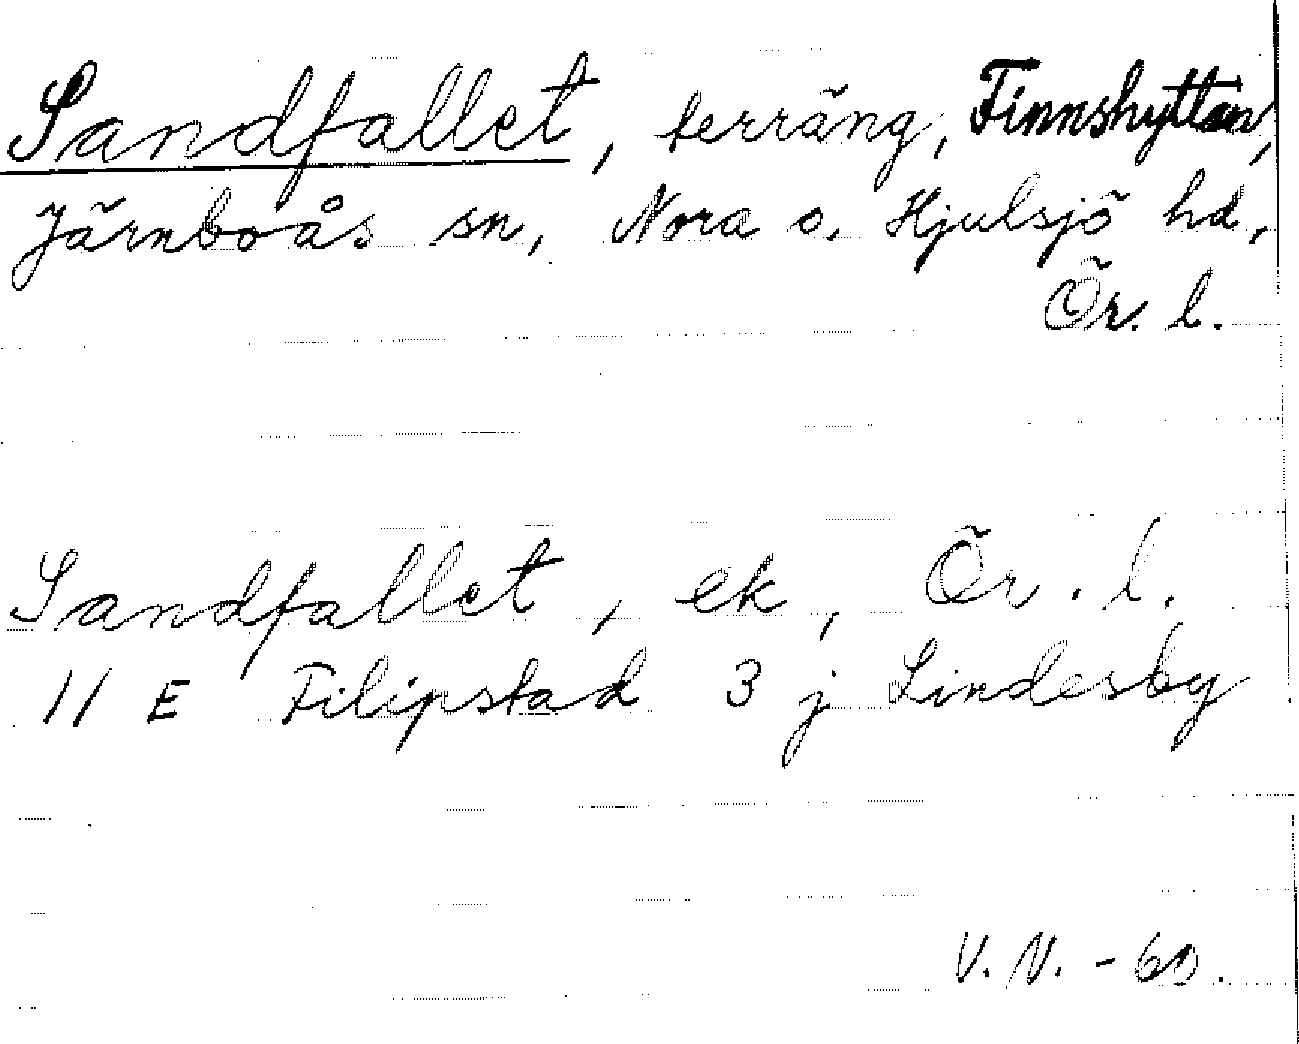 Sandfallet, terräng, Finnshyttan,
Järnboås sn, Nora o. Hjulsjö hd,
Ör. l.
Sandfallet, ek, Ör. l.
11 E Filipstad 3 j Lindesby
V. N. - 60.